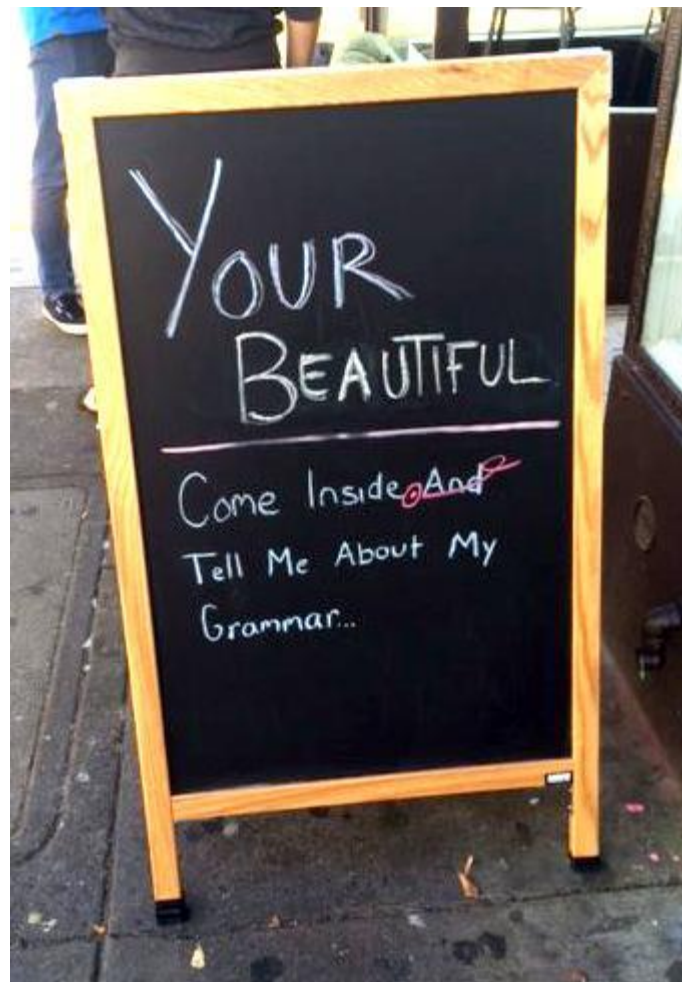 YOUR
BEAUTIFUL
Come Inside. And
Tell Me About My
Grammar...